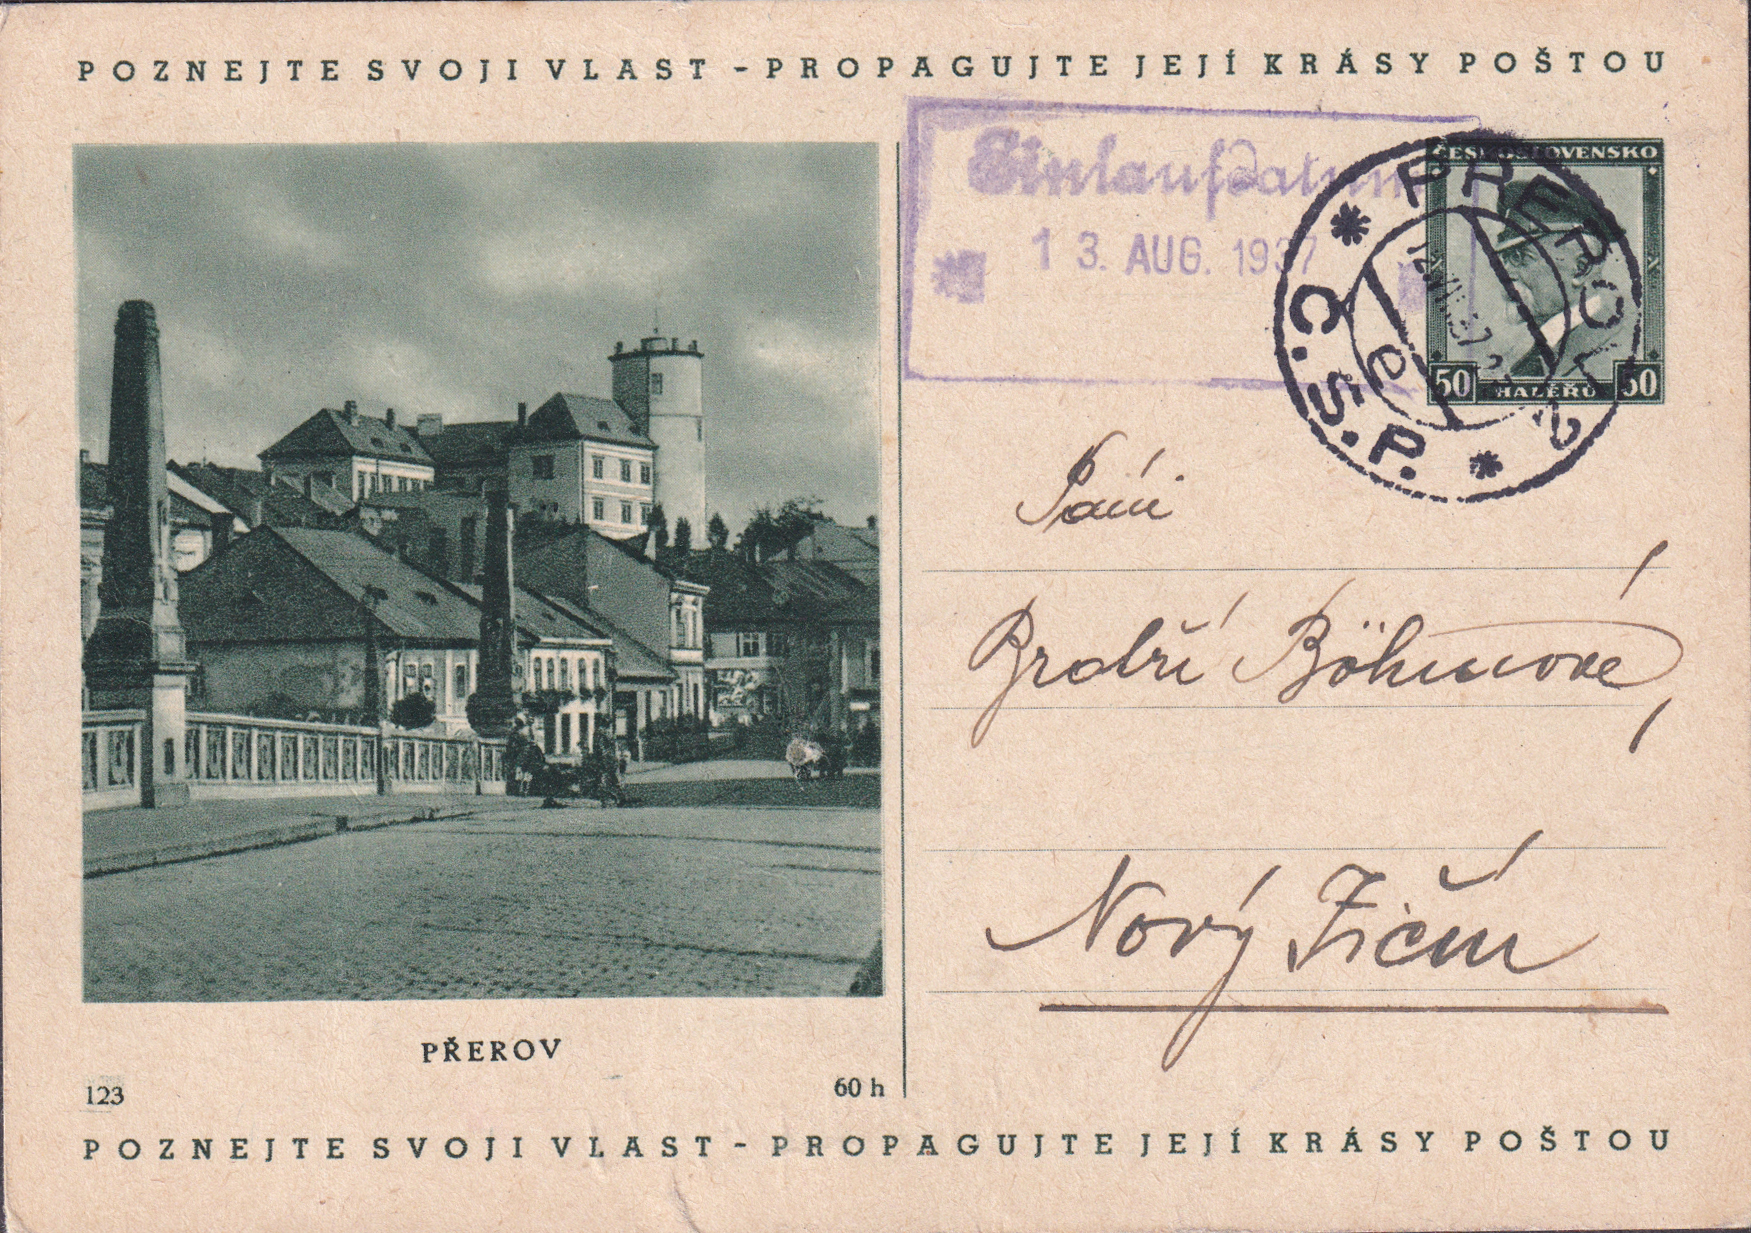 POZNEJTE SVOJI VLAST - PROPAGUJTE JEJÍ KRÁSY POŠTOU
Einlaufdatum
13. AUG. 1937
ČESKOSLOVENSKO
50 HALÉŘŮ 50
PŘEROV
Č.S.P.
e
Páni
Bratří Böhmové,
Nový Jičín
PŘEROV
123
60 h
POZNEJTE SVOJI VLAST - PROPAGUJTE JEJÍ KRÁSY POŠTOU